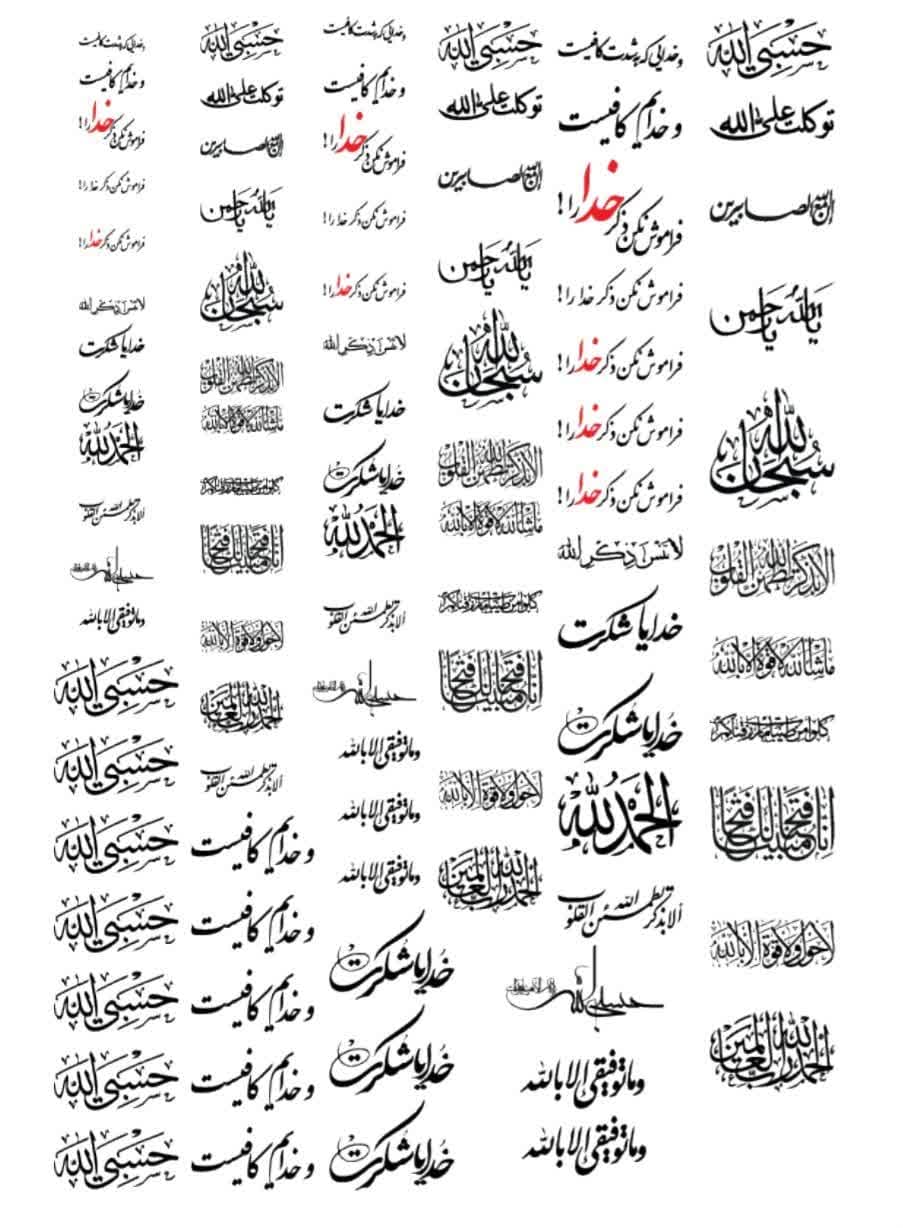 حسبي الله
توکلت علی الله
ان الله مع الصابرین
یا الله یا رحمن
سبحان الله
الا بذکر الله تطمئن القلوب
ماشاالله لا قوة الا بالله
کلوا من طیبات ما رزقناکم
انا فتحنا لک فتحا مبینا
لا حول و لا قوة الا بالله
الحمد لله رب العالمین
و خدایی که بشدت کافیست
و خدایم کافیست
فراموش نکن ذکر خدا را!
فراموش نکن ذکر خدا را!
فراموش نکن ذکر خدا را!
فراموش نکن ذکر خدا را!
فراموش نکن ذکر خدا را!
لا تنس ذکر الله
خدایا شکرت
خدایا شکرت
الحمدلله
الا بذکر الله تطمئن القلوب
حسبي الله
وما توفیقی الا بالله
وما توفیقی الا بالله
حسبي الله
توکلت علی الله
ان الله مع الصابرین
یا الله یا رحمن
سبحان الله
الا بذکر الله تطمئن القلوب
ماشاالله لا قوة الا بالله
کلوا من طیبات ما رزقناکم
انا فتحنا لک فتحا مبینا
لا حول و لا قوة الا بالله
الحمد لله رب العالمین
و خدایی که بشدت کافیست
و خدایم کافیست
فراموش نکن ذکر خدا را!
فراموش نکن ذکر خدا را!
فراموش نکن ذکر خدا را!
لا تنس ذکر الله
خدایا شکرت
خدایا شکرت
الحمدلله
الا بذکر الله تطمئن القلوب
حسبي الله
وما توفیقی الا بالله
وما توفیقی الا بالله
وما توفیقی الا بالله
خدایا شکرت
خدایا شکرت
خدایا شکرت
حسبي الله
توکلت علی الله
ان الله مع الصابرین
یا الله یا رحمن
سبحان الله
الا بذکر الله تطمئن القلوب
ماشاالله لا قوة الا بالله
کلوا من طیبات ما رزقناکم
انا فتحنا لک فتحا مبینا
لا حول و لا قوة الا بالله
الحمد لله رب العالمین
الا بذکر الله تطمئن القلوب
و خدایم کافیست
و خدایم کافیست
و خدایم کافیست
و خدایم کافیست
و خدایم کافیست
و خدایی که بشدت کافیست
و خدایم کافیست
فراموش نکن ذکر خدا را!
فراموش نکن ذکر خدا را!
فراموش نکن ذکر خدا را!
لا تنس ذکر الله
خدایا شکرت
خدایا شکرت
الحمدلله
الا بذکر الله تطمئن القلوب
حسبي الله
وما توفیقی الا بالله
حسبي الله
حسبي الله
حسبي الله
حسبي الله
حسبي الله
حسبي الله
حسبي الله